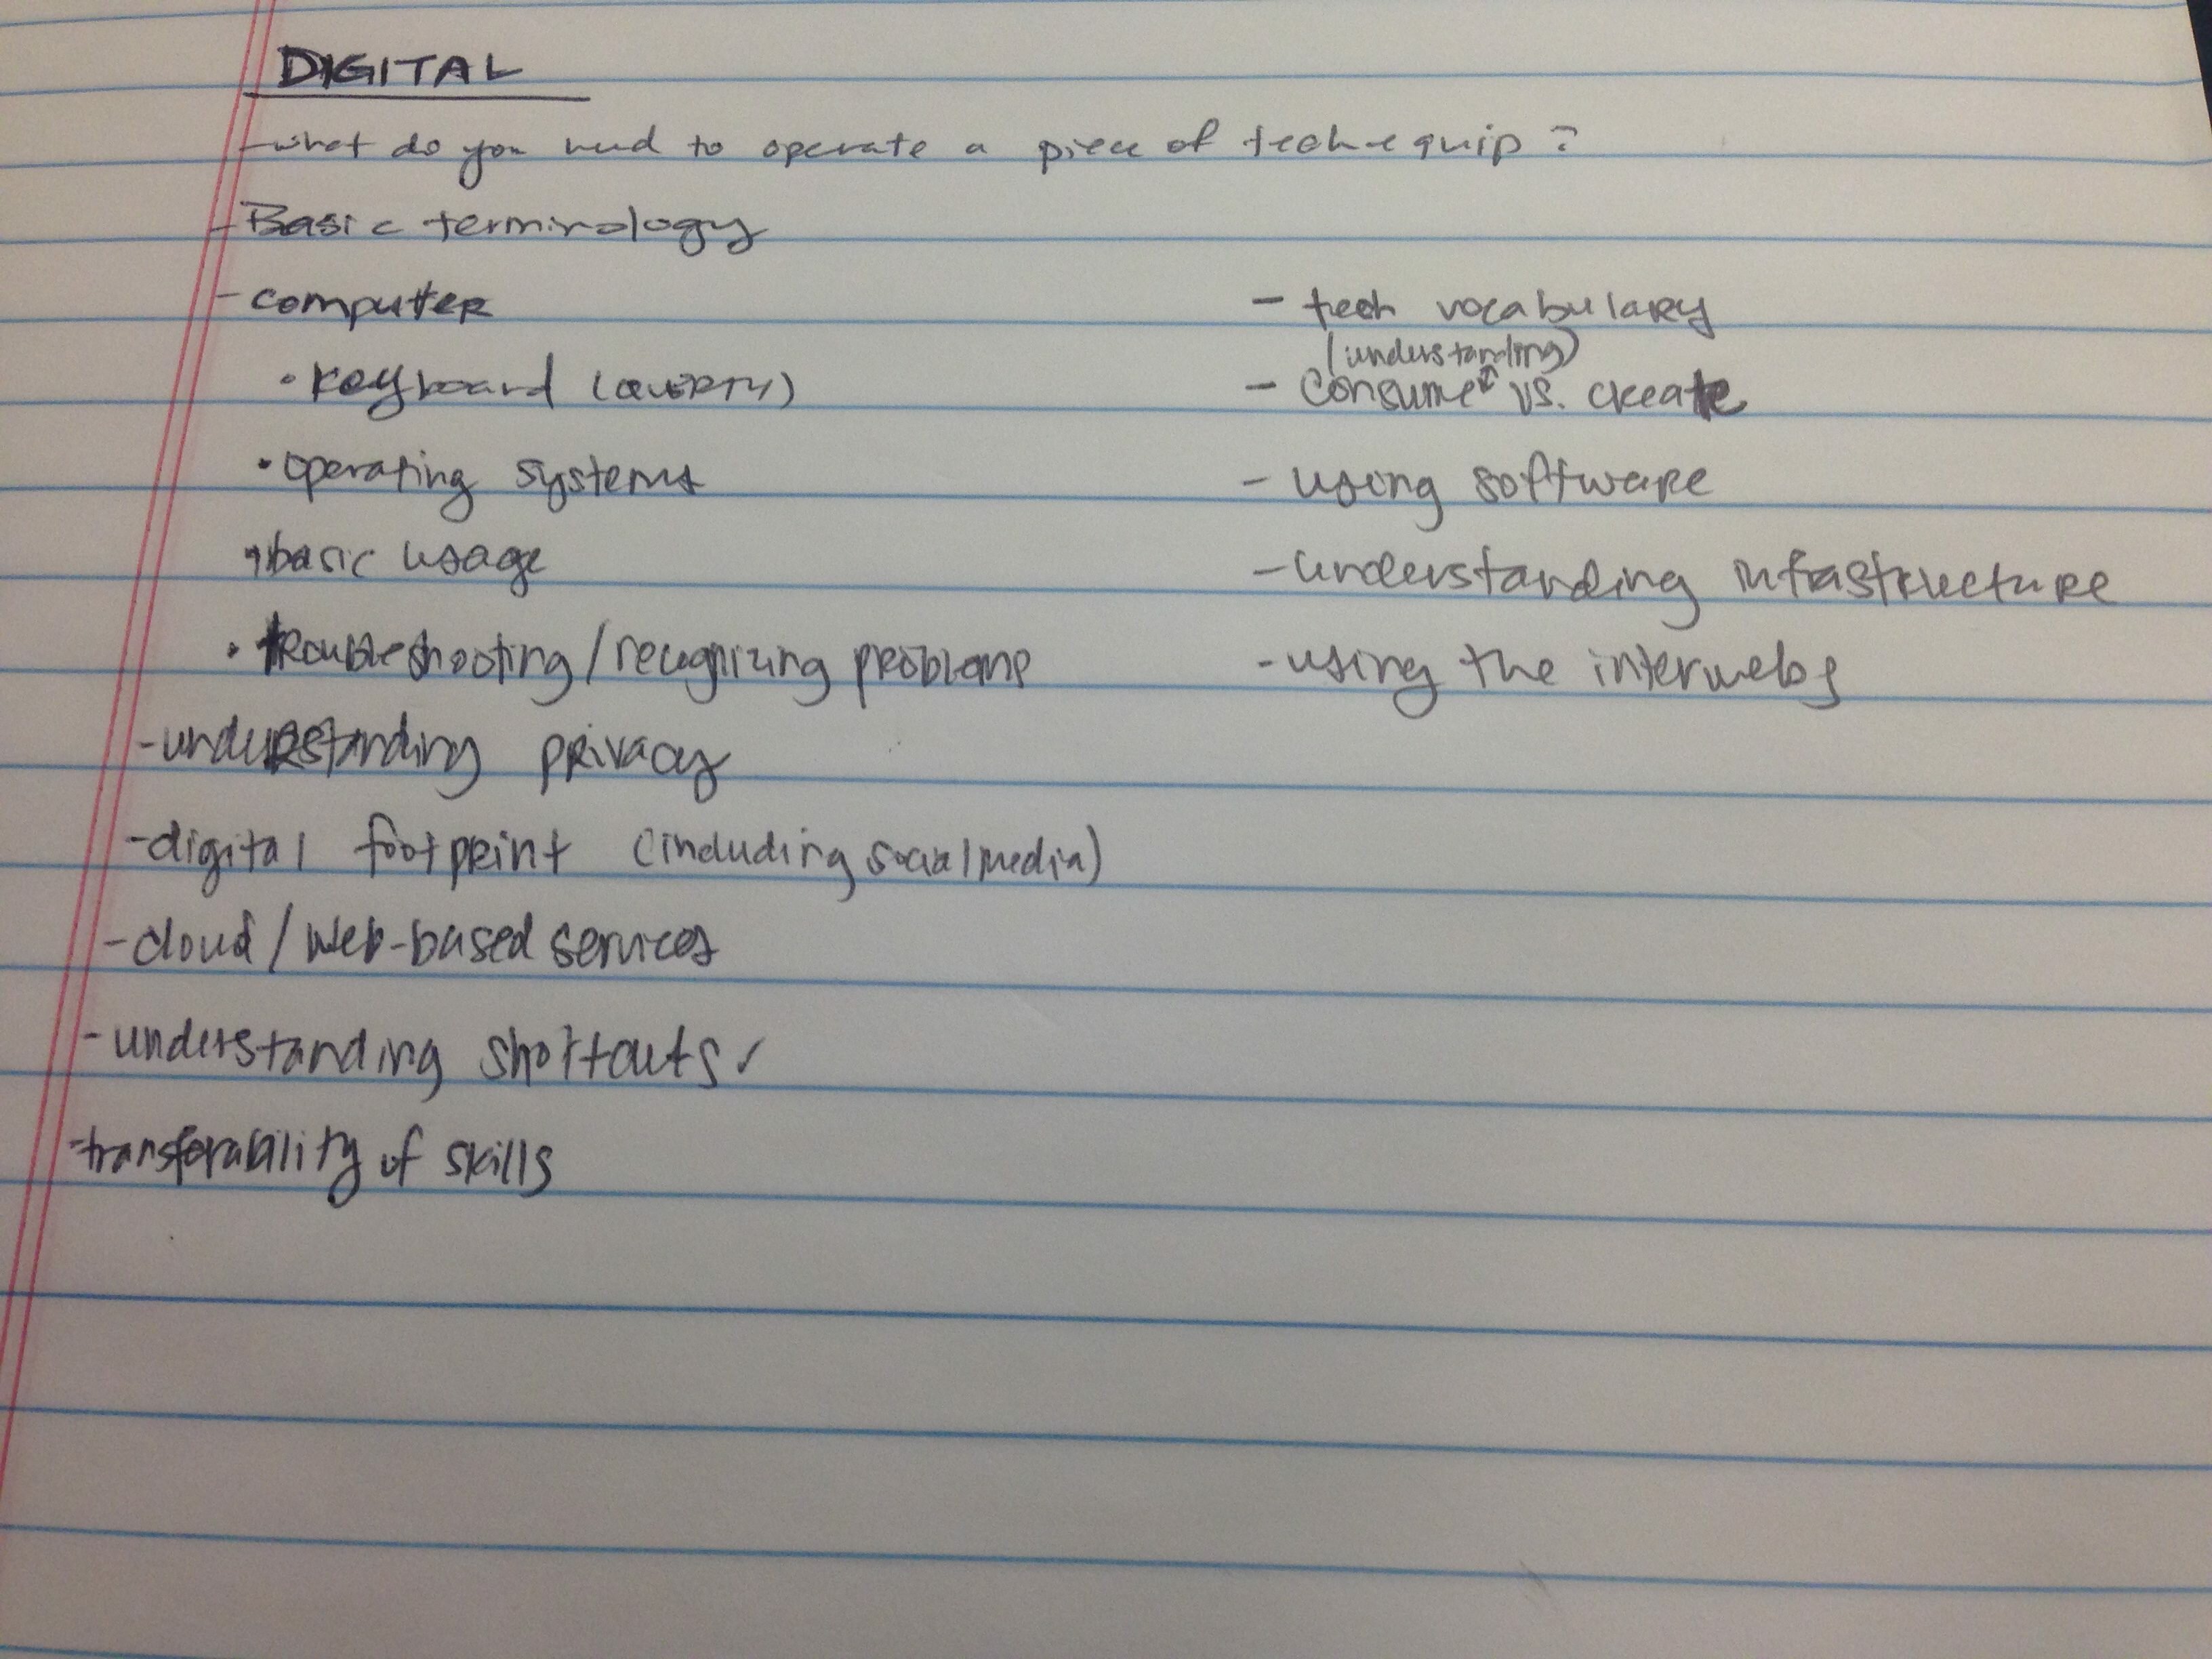 DIGITAL
- what do you need to operate a piece of tech equip?
- Basic terminology
- computer
• keyboard (QWERTY)
• operating systems
• basic usage
• troubleshooting/recognizing problems
- understanding privacy
- digital footprint (including social media)
- cloud/web-based services
- understanding shortcuts ✓
- transferability of skills
- tech vocabulary
(understanding)
- Consume ^ vs. create
- using software
- understanding infrastructure
- using the interwebs